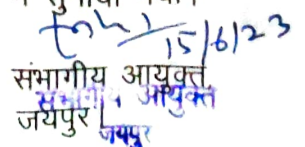 15/6/23
संभागीय आयुक्त,
संभागीय आयुक्त
जयपुर।
जयपुर